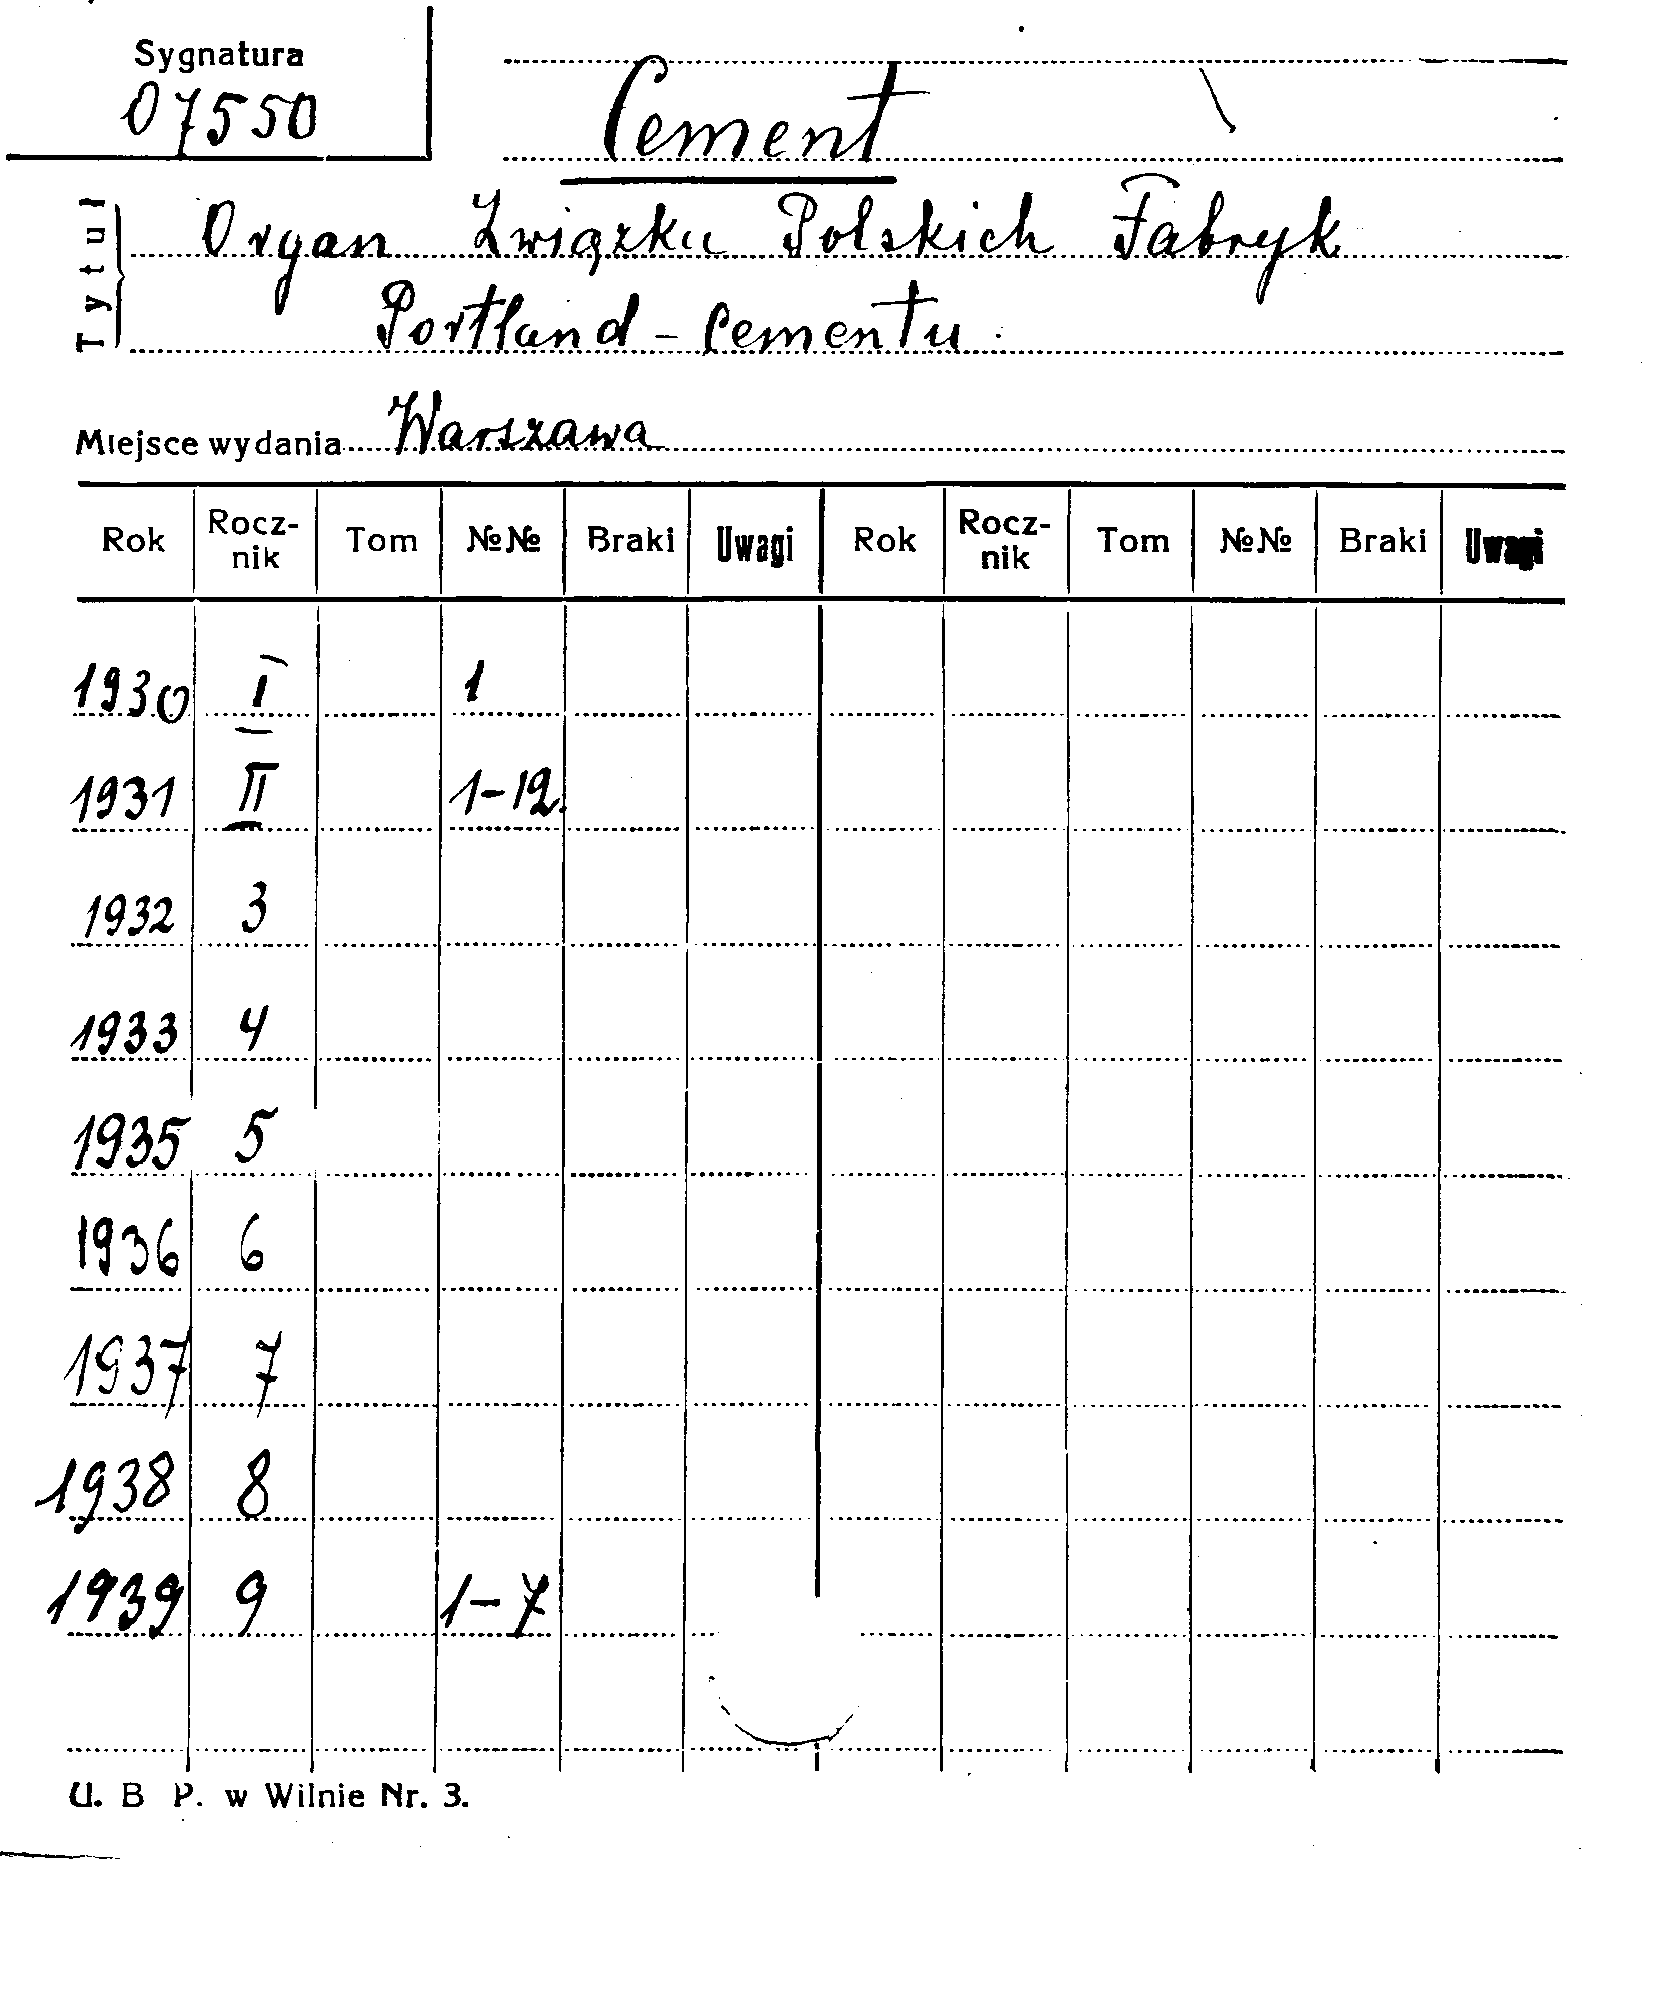 Sygnatura
07550
Cement
Tytuł
Organ Związku Polskich Fabryk
Portland - Cementu.
Miejsce wydania Warszawa
Rok Rocz-nik Tom №№ Braki Uwagi Rok Rocz-nik Tom №№ Braki Uwagi
1930 I 1
1931 II 1-12.
1932 3
1933 4
1935 5
1936 6
1937 7
1938 8
1939 9 1-7
U. B P. w Wilnie Nr. 3.